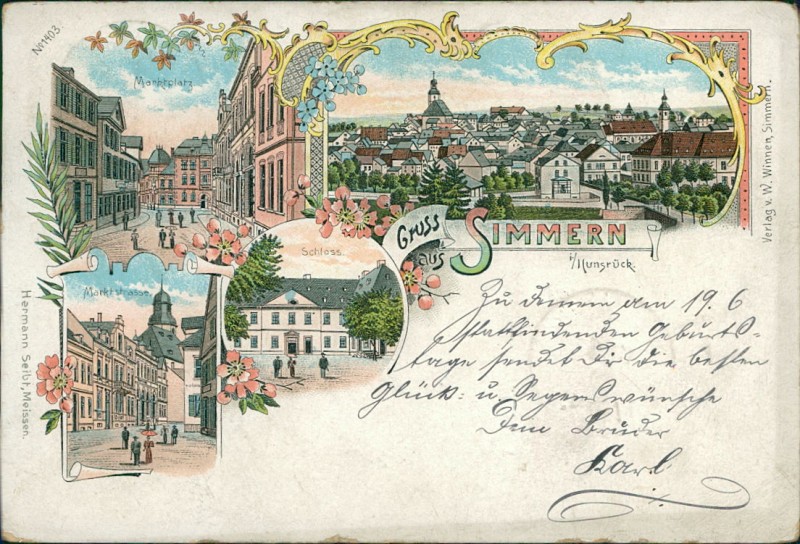 No 1403
Marktplatz
Gruss
aus
SIMMERN
i/Hunsrück.
Schloss.
Marktstrasse.
Zu Deinem am 19. 6
stattfindenden Geburts-
tage sendet Dir die besten
Glück: u. Segenswünsche
Dein Bruder
Karl
Verlag v. W. Winnen, Simmern.
Hermann Seibt, Meissen.